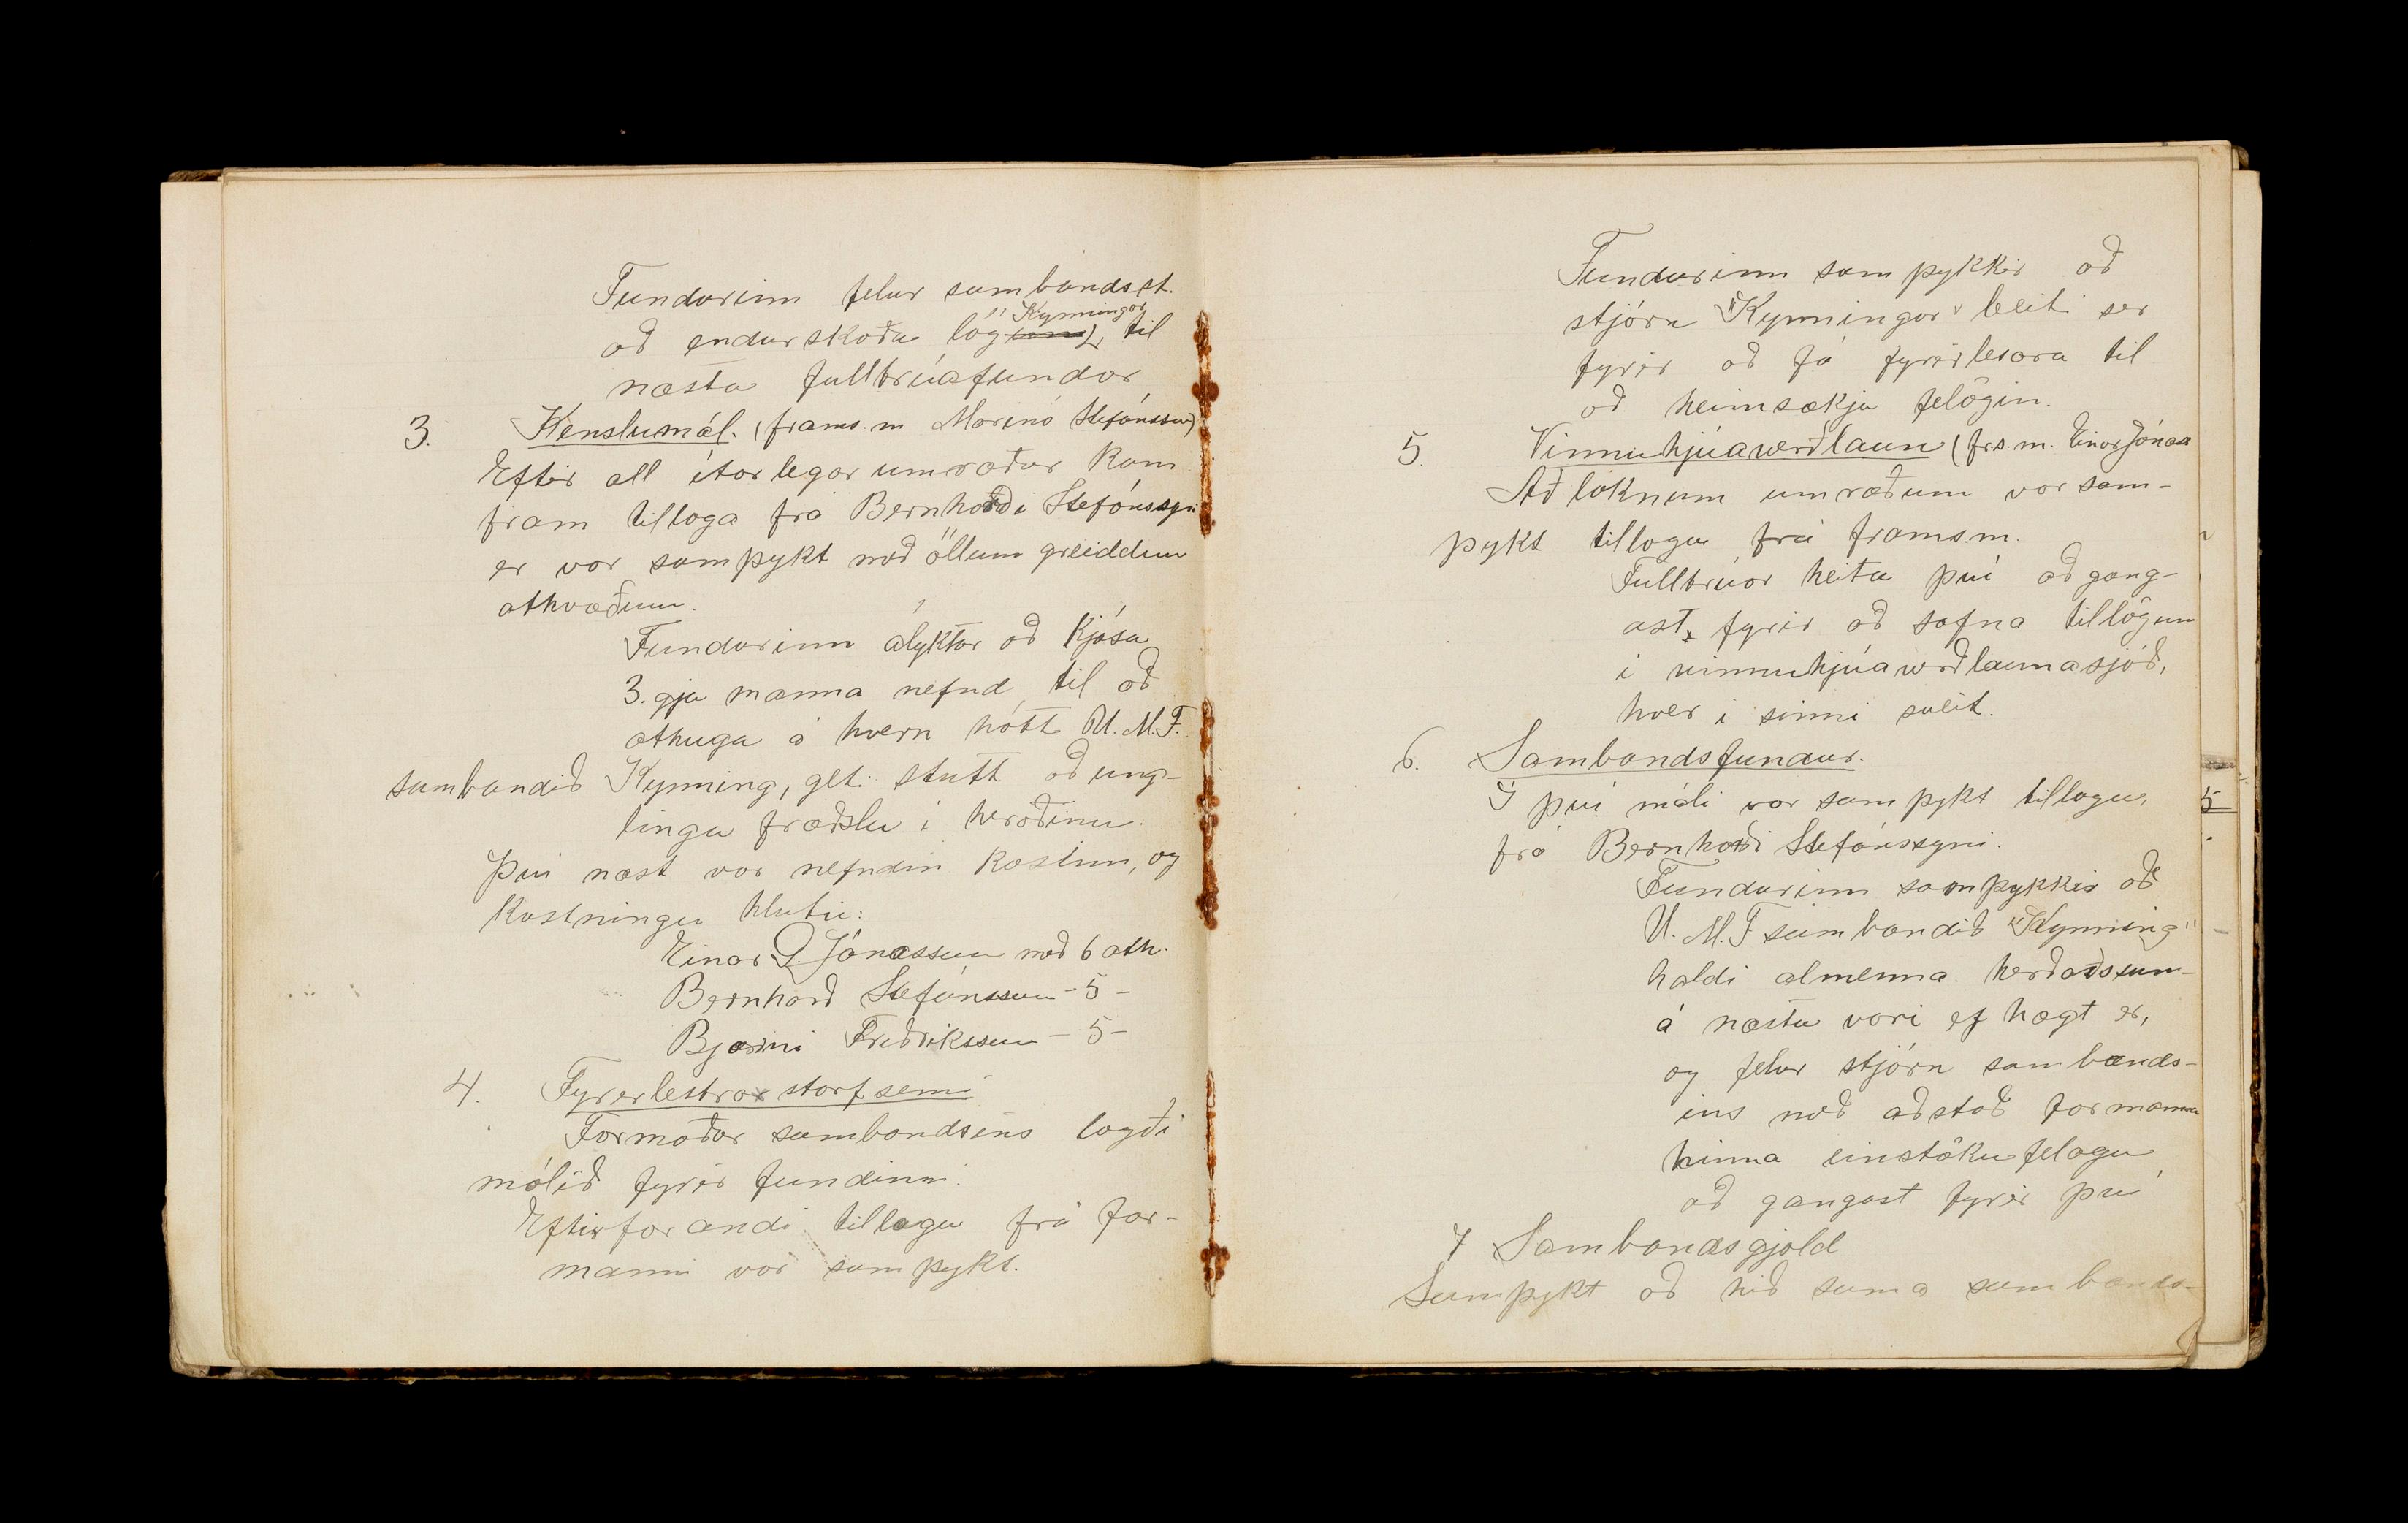 Fundurinn felur sambandsst.
að endurskoða lög Kynningar til
næsta fulltrúafundar
3. Kenslumál. (frams.m Marinó Stefánsson)
Eftir all ítarlegar umræður kom
fram tillaga frá Bernharði Stefánssyni
er var samþykt með öllum greiddum
atkvæðum.
Fundurinn ályktar að kjósa
3.gja manna nefnd til að
athuga á hvern hátt U.M.F.
sambandið Kynning, geti stutt að ung-
linga fræðslu í héraðinu.
Því næst var nefndin kosinn, og
kostningu hlutu:
Einar G. Jónasson með 6 atk.
Bernharð Stefánsson - 5 -
Bjarni Friðriksson - 5 -
4. Fyrerlestrar starfsemi
Formaður sambandsins lagði
málið fyrir fundinn.
Eftirfarandi tillaga frá for-
manni var samþykt.
Fundurinn samþykkir að
stjórn "Kynningar" leiti ser
fyrir að fá fyrirlesara til
að heimsækja felögin.
5. Vinnuhjúaverðlaun (frs.m. Einar Jónas
Að loknum umræðum var sam-
þykt tillaga frá frams.m.
Fulltrúar heita því að gang-
ast fyrir að safna tillögum
í vinnuhjúaverðlaunasjóð,
hver í sinni sveit.
6. Sambandsfundur.
Í því máli var samþykt tillaga,
frá Bernharði Stefánssyni.
Fundurinn samþykkir að
U.M.F sambandið "Kynning"
haldi almenna heraðssam-
á næsta vori ef hægt er,
og felur stjórn sambands-
ins með aðstoð formanna
hinna einstöku felaga
að gangast fyrir því
7 Sambandsgjold
Samþykt að hið sama sambands-
5